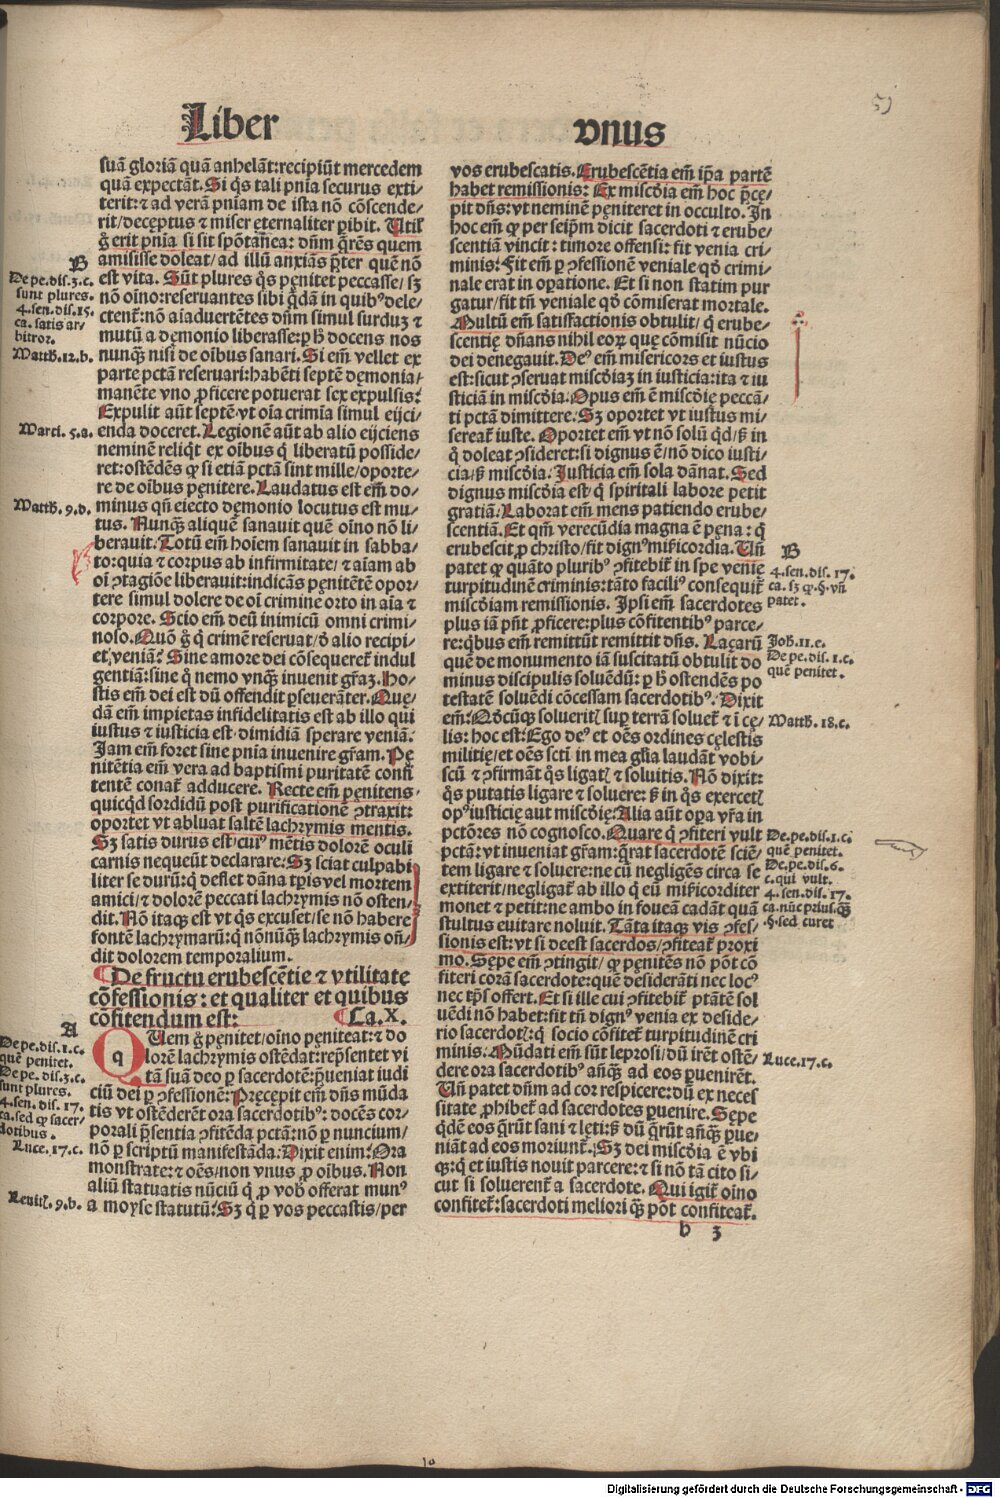 Liber
vnus
suã gloriã quã anhelãt: recipiũt mercedem
quã expectãt. Si q̃s tali pñia securus exti-
terit: ⁊ ad verã pniam de ista nõ cõscende-
rit/deceptus ⁊ miser eternaliter ꝑibit. Util̃
g̃ erit pñia si sit spõtañea: dñm q̃rẽs quem
amisisse doleat/ad illũ anxiãs p̃ter quẽ nõ
est vita. Sũt plures q̃s penitet peccasse/sꝫ
nõ oĩno: reseruantes sibi q̃dã in quibꝰ dele-
ctent̃: nõ aĩaduertẽtes dñm simul surdũ ⁊
mutũ a demonio liberasse: ꝑ h̃ docens nos
nunq̃ꝫ nisi de oĩbus sanari. Si em̃ vellet ex
parte pctã reseruari: habẽti septẽ demonia/
manẽte vno ꝓficere potuerat sex expulsis:
Expulit aũt septẽ: vt oĩa crimĩa simul eijci-
enda doceret. Legionẽ aũt ab alio eijciens
neminẽ reliq̃t ex oĩbus q̃ liberatũ posside-
ret: ostẽdẽs ꝙ si etiã pctã sint mille/oporte-
re de oĩbus pęnitere. Laudatus est em̃ do-
minus qñ eiecto dęmonio locutus est mu-
tus. Nunq̃ꝫ aliquẽ sanauit quẽ oĩno nõ li-
berauit. Totũ em̃ hoĩem sanauit in sabba-
to: quia ⁊ corpus ab infirmitate/⁊ aĩam ab
oĩ ↄtagiõe liberauit: indicãs pęnitẽtẽ opor-
tere simul dolere de oĩ crimine orto in aĩa ⁊
corpore. Scio em̃ deũ inimicũ omni crimi-
noso. Quõ g̃ q̃ crimẽ reseruat/ð alio recipi-
et veniã? Sine amore dei cõsequeret̃ indul
gentiã: sine q̃ nemo vnq̃ꝫ inuenit gr̃aꝫ. Ho-
stis em̃ dei est dũ offendit ꝑseuerãter. Que-
dã em̃ impietas infidelitatis est ab illo qui
iustus ⁊ iusticia est dimidiã sperare veniã.
Jam em̃ foret sine pnia inuenire gr̃am. Pę
nitẽtia em̃ vera ad baptismi puritatẽ confi
tentẽ conat̃ adducere. Recte em̃ pęnitens
quicq̃d sordidũ post purificationẽ ↄtraxit:
oportet vt abluat saltẽ lachrymis mentis.
Sꝫ satis durus est/cuiꝰ mẽtis dolorẽ oculi
carnis nequeũt declarare. Sꝫ sciat culpabi
liter se durũ: q̃ deflet dãna tp̃is vel mortem
amici/⁊ dolorẽ peccati lachrymis nõ osten-
dit. Nõ itaqꝫ est vt q̃s excuset/se nõ habere
fontẽ lachrymarũ: q̃ nõnũq̃ꝫ lachrymis oñ-
dit dolorem temporalium.
¶De fructu erubescẽtie ⁊ vtilitate
cõfessionis: et qualiter et quibus
cõfitendum est: ¶Ca. X.
qUem g̃ pęnitet/oĩno pęniteat: ⁊ do
lorẽ lachrymis ostẽdat: rep̃sentet vi
tã suã deo ꝑ sacerdotẽ: p̃ueniat iudi
ciũ dei ꝑ ↄfessionẽ: Pręcepit em̃ dñs mũda
tis vt ostẽderẽt ora sacerdotibꝰ: docẽs cor-
porali p̃sentia ↄfitẽda pctã: nõ ꝑ nuncium/
nõ ꝑ scriptũ manifestãda. Dixit enim: Ora
monstrate: ⁊ oẽs/non vnus ꝓ oĩbus. Non
aliũ statuatis nũciũ q̃ ꝓ vob̃ offerat munꝰ
a moyse statutũ: Sꝫ q̃ ꝑ vos peccastis/per
B
De pe. dis. 3. c.
sunt plures.
4. sen. dis. 15.
ca. satis ar-
bitror.
Matth. 12. b.
Marci. 5. a.
Matth. 9. d.
A
De pe. dis. 1. c.
quẽ penitet.
De pe. dis. 3. c.
sunt plures.
4. sen. dis. 17.
ca. sed q̃ sacer-
dotibus.
Luce. 17. c.
Leuit̃. 9. b.
vos erubescatis. Erubescẽtia em̃ ip̃a partẽ
habet remissionis: Ex miscðia em̃ hoc p̃cę-
pit dñs: vt neminẽ pęniteret in occulto. In
hoc em̃ ꝙ per seip̃m dicit sacerdoti ⁊ erube-
scentiã vincit: timore offensi: fit venia cri-
minis: Fit em̃ ꝑ ↄfessionẽ veniale qð crimi-
nale erat in oꝑatione. Et si non statim pur
gatur/fit tñ veniale qð cõmiserat mortale.
Multũ em̃ satisfactionis obtulit/q̃ erube-
scentię dñans nihil eoꝝ que cõmisit nũcio
dei denegauit. Deꝰ em̃ misericors et iustus
est: sicut ↄseruat miscðiaꝫ in iusticia: ita ⁊ iu
sticiã in miscðia. Opus em̃ ẽ miscðie peccã-
ti pctã dimittere. Sꝫ oportet vt iustus mi-
sereat̃ iuste. Oportet em̃ vt nõ solũ q̃d/ß in
q̃ doleat ↄsideret: si dignus ẽ/nõ dico iusti-
cia/ß miscðia. Justicia em̃ sola dãnat. Sed
dignus miscðia est/q̃ spiritali labore petit
gratiã/Laborat em̃ mens patiendo erube-
scentiã. Et qm̃ verecũdia magna ẽ pęna: q̃
erubescit ꝓ christo/fit dignꝰ mĩsericordia. Uñ
patet ꝙ quãto pluribꝰ ↄfitebit̃ in spe venię
turpitudinẽ criminis: tãto faciliꝰ consequit̃
miscðiam remissionis. Ipsi em̃ sacerdotes
plus iã pñt ꝓficere: plus cõfitentibꝰ parce-
re: q̃bus em̃ remittũt remittit dñs. Laçarũ
quẽ de monumento iã suscitatũ obtulit do
minus discipulis soluẽdũ: ꝑ h̃ ostendẽs po
testatẽ soluẽdi cõcessam sacerdotibꝰ. Dixit
em̃: Qðcũqꝫ solueritꝭ suꝑ terrã soluet̃ ⁊ ĩ cę-
lis: hoc est: Ego deꝰ et oẽs ordines cęlestis
militię/et oẽs scti in mea gl̃ia laudãt vobi-
scũ ⁊ ↄfirmãt q̃s ligatꝭ ⁊ soluitis. Nõ dixit:
q̃s putatis ligare ⁊ soluere: ß in q̃s exercetꝭ
opꝰ iusticię aut miscðię: Alia aũt oꝑa vr̃a in
pctõres nõ cognosco. Quare q̃ ↄfiteri vult
pctã: vt inueniat gr̃am: q̃rat sacerdotẽ sciẽ-
tem ligare ⁊ soluere: ne cũ negligẽs circa se
extiterit/negligat̃ ab illo q̃ eũ mĩsericorditer
monet ⁊ petit: ne ambo in foueã cadãt quã
stultus euitare noluit. Tãta itaqꝫ vis ↄfes-
sionis est: vt si deest sacerdos/ↄfiteat̃ proxi
mo. Sępe em̃ ↄtingit/ꝙ pęnitẽs nõ põt cõ
fiteri corã sacerdote: quẽ desiderãti nec locꝰ
nec tp̃s offert. Et si ille cui ↄfitebit̃ ptãtẽ sol
uẽdi nõ habet: fit tñ dignꝰ venia ex deside-
rio sacerdotꝭ: q̃ socio cõfitet̃ turpitudinẽ cri
minis. Mũdati em̃ sũt leprosi/dũ irẽt ostẽ-
dere ora sacerdotibꝰ añq̃ꝫ ad eos ꝑuenirẽt.
Uñ patet dñm ad cor respicere: dũ ex neces
sitate ꝓhibet̃ ad sacerdotes ꝑuenire. Sępe
q̃dẽ eos q̃rũt sani ⁊ lęti: ß dũ q̃rũt añq̃ꝫ ꝑue-
niãt ad eos moriunt̃. Sꝫ dei miscðia ẽ vbi
qꝫ: q̃ et iustis nouit parcere: ⁊ si nõ tã cito si-
cut si soluerent̃ a sacerdote. Qui igit̃ oĩno
confitet̃: sacerdoti meliori q̃ꝫ põt confiteat̃.
b 3
B
4. sen. dis. 17.
ca. sꝫ ꝙ. §. vñ
patet.
Joh. 11. e.
De pe. dis. 1. c.
quẽ penitet.
Matth. 18. c.
De. pe. dis. 1. c.
quẽ penitet.
De. pe. dis. 6.
c. qui vult.
4. sen. dis. 17.
ca. nũc prius. q̃ꝫ
.§. sed curet
Luce. 17. c.
Digitalisierung gefördert durch die Deutsche Forschungsgemeinschaft - DFG